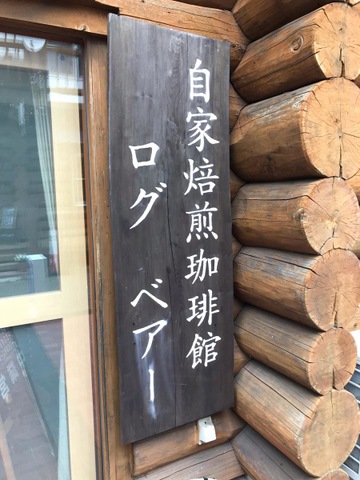 自家焙煎珈琲館
ログ ベアー